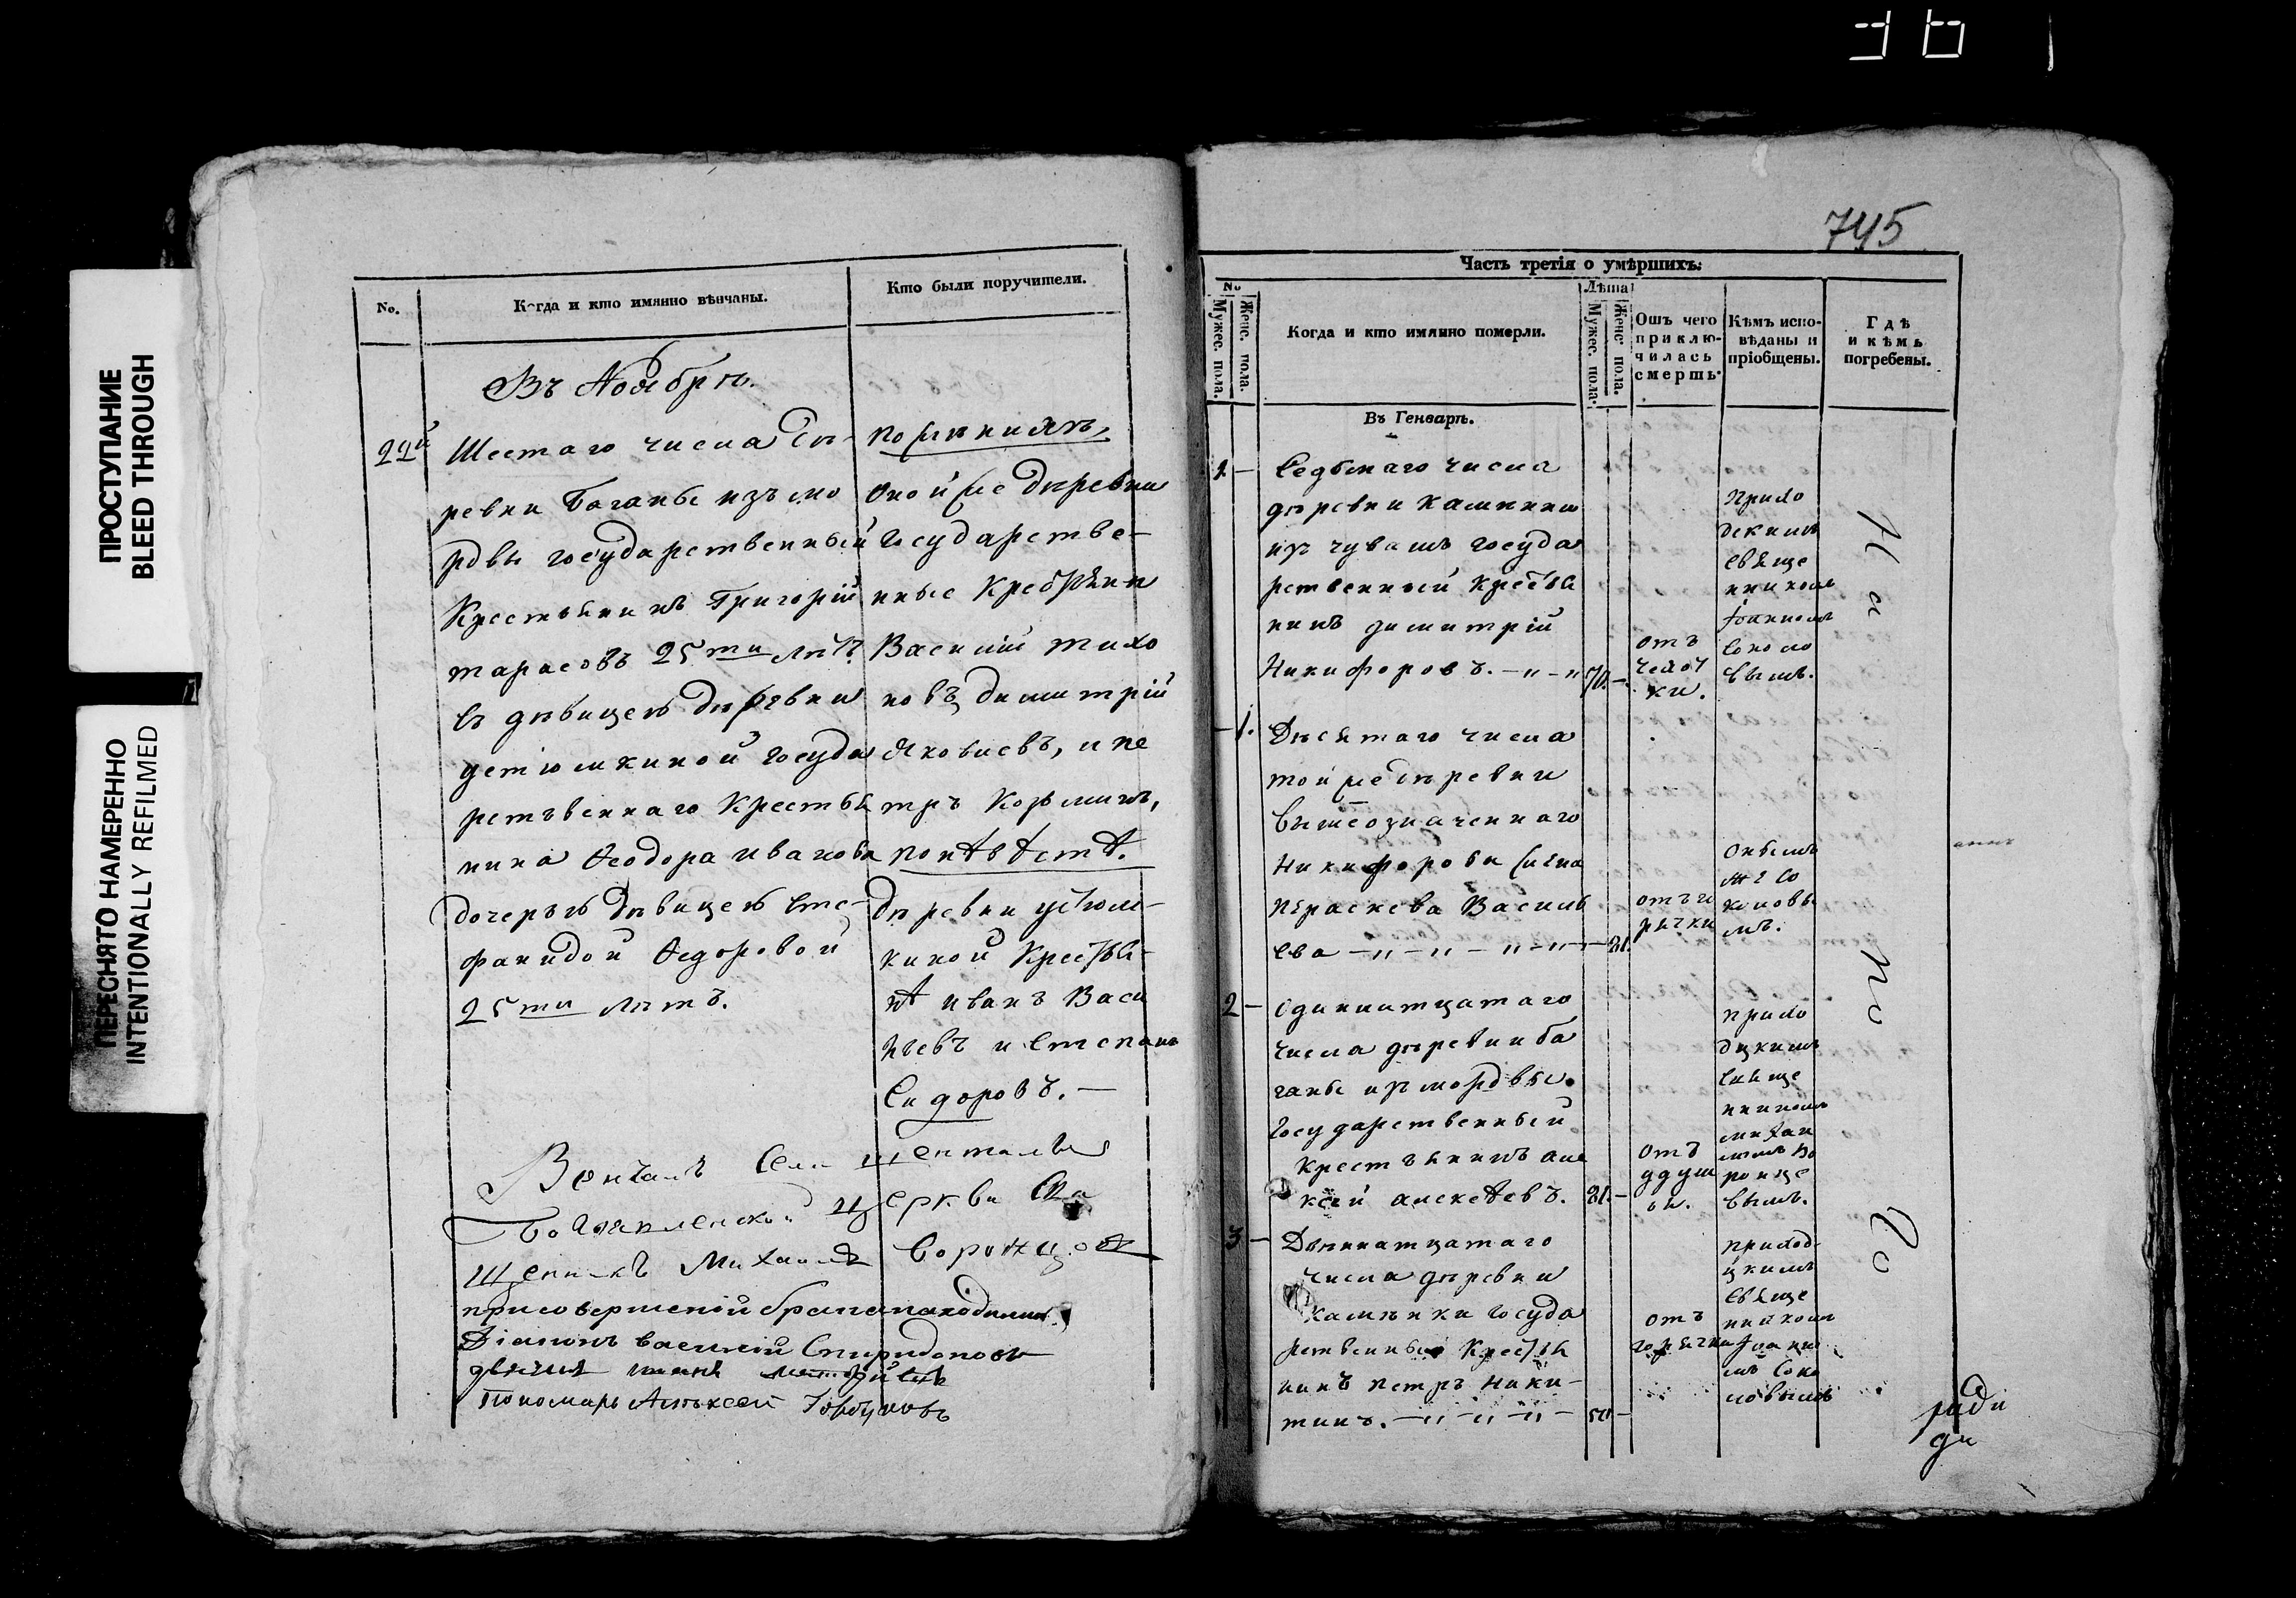 ПРОСТУПАНИЕ
BLEED THROUGH
ПЕРЕСНЯТО НАМЕРЕННО
INTENTIONALLY REFILMED
No.
Когда и кто имянно вѣнчаны.
Кто были поручители.
Въ Ноябрѣ.
22й
Шестаго числа де-
ревни Баганы изъ мо
рдвы государственный
Крестьянинъ Григорій
Тарасовъ 25ти лѣтъ.
съ дѣвицею деревни
устюмкиной Госуда
рственнаго Крестья
нина Феодора Иванова
дочерью девицею Сте-
фанидой Федоровой
25ти лѣтъ.
по женихѣ,
оной же деревни
Государстве-
нные Крестьяни
Василій Тихо
новъ, Димитрій
Яковлевъ, и пе
тръ Козминъ,
по невѣстѣ.
деревни устюм-
киной Крестья-
не Иванъ Васи
льевъ и Степанъ
Сидоровъ. —
Венчалъ Села шенталы
Богоявленской церкви Свя
щенникъ Михаилъ Воронцов
при совершеній брака находились
Діаконъ Василій Спиридоновъ
дьячекъ
Пономарь Алексей Горбуновъ
745
Часть третія о умѣршихъ:
No
Мужес. пола.
Женс. пола.
Когда и кто имянно померли.
Лѣта
Мужес. пола.
Женс. пола.
Отъ чего
приклю-
чилась
смерть.
Кѣмъ испо-
вѣданы и
пріобщены.
Гдѣ
и кѣмъ
погребены.
Въ Генварѣ.
1 — Седьмаго числа
деревни Камкини
изъ чувашъ госуда
рственный Крестья
нинъ Димитрій
Никифоровъ. — 70. —
отъ
чехот
ки.
Прихо
дскимъ
свяще
нникомъ
Іоанномъ
Соколо
вымъ.
— 1. Десятаго числа
той же деревни
вышеозначеннаго
Никифорова жена
Параскева Василь
ева — 81.
отъ го
рячки
Онымъ
же Со
коловы
мъ.
2 — Одиннатцатаго
числа деревни Ба
ганы изъ мордвы
Государственный
Крестьянинъ але
ксей алексеевъ. 81. —
отъ
удуш
ья.
прихо
дскимъ
свяще
нникомъ
михаи
ломъ Во
ронце
вымъ.
3 — Двенатцатаго
числа деревни
камкина госуда
рственный Крестья
нинъ петръ Ники-
тинъ. — 50 —
отъ
горячки
приход-
цкимъ
свяще
нникомъ
Іоанно
мъ Соко
ловымъ
На